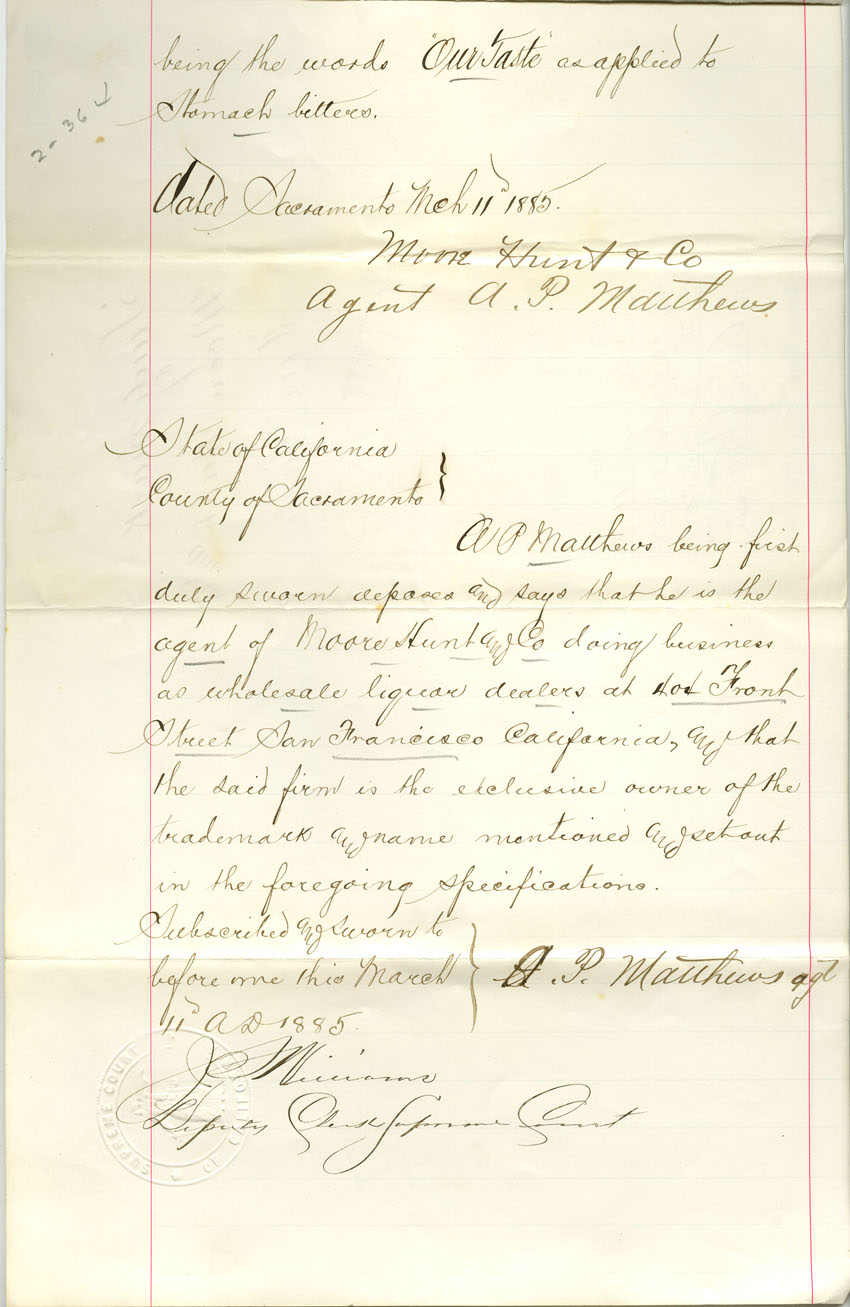 being the words "Our Taste" as applied to
Stomach bitters.
2-36
dated Sacramento Mch 11th 1885.
Moore Hunt & Co
Agent A. P. Matthews
State of California
County of Sacramento }
A P Matthews being first
duly sworn deposes and says that he is the
agent of Moore Hunt and Co doing business
as wholesale liquor dealers at 404 Front
Street San Francisco California, and that
the said firm is the exclusive owner of the
trademark and name mentioned and set out
in the foregoing specifications.
Subscribed and sworn to
before me this March
11th A D 1885.
} A. P. Matthews agt
Williams
Deputy Clerk Supreme Court
SUPREME COURT